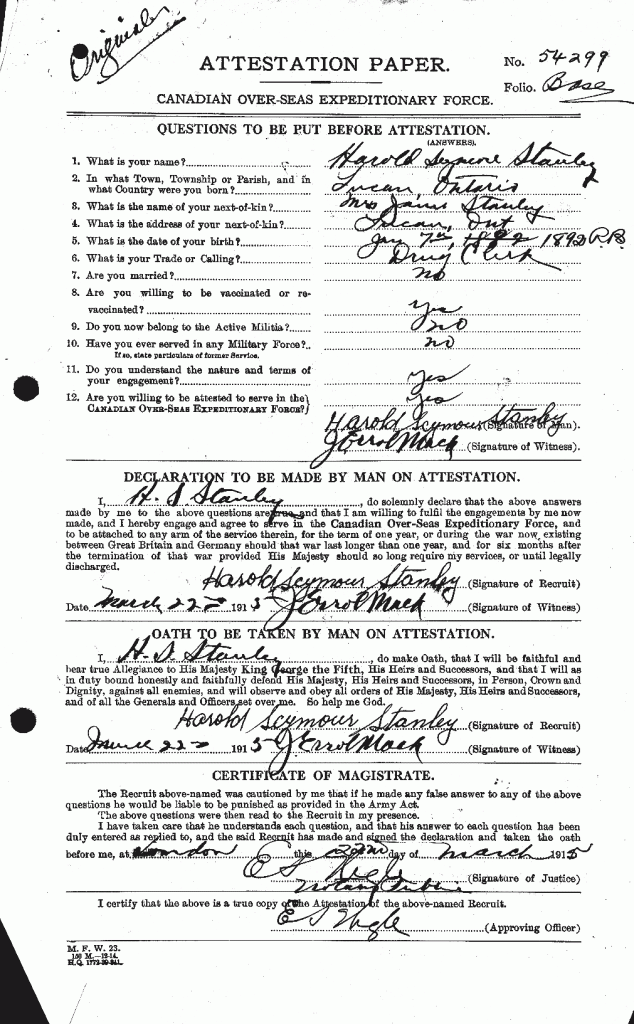 Original
ATTESTATION PAPER.
No. 54299
Folio. Base
CANADIAN OVER-SEAS EXPEDITIONARY FORCE.
QUESTIONS TO BE PUT BEFORE ATTESTATION.
(ANSWERS).
1. What is your name? Harold Seymore Stanley
2. In what Town, Township or Parish, and in
what Country were you born? Lucan, Ontario
3. What is the name of your next-of-kin? Mrs James Stanley
4. What is the address of your next-of-kin? Lucan, Ont
5. What is the date of your birth? Jan 7th, 1892 1892 R.B.
6. What is your Trade or Calling? Drug Clerk
7. Are you married? no
8. Are you willing to be vaccinated or re-
vaccinated? Yes
9. Do you now belong to the Active Militia? no
10. Have you ever served in any Military Force? no
If so, state particulars of former Service.
11. Do you understand the nature and terms of
your engagement? Yes
12. Are you willing to be attested to serve in the Yes
CANADIAN OVER-SEAS EXPEDITIONARY FORCE?
Harold Seymour Stanley (Signature of Man).
J Errol Mack (Signature of Witness).
DECLARATION TO BE MADE BY MAN ON ATTESTATION.
I, H. S. Stanley, do solemnly declare that the above answers
made by me to the above questions are true, and that I am willing to fulfil the engagements by me now
made, and I hereby engage and agree to serve in the Canadian Over-Seas Expeditionary Force, and
to be attached to any arm of the service therein, for the term of one year, or during the war now existing
between Great Britain and Germany should that war last longer than one year, and for six months after
the termination of that war provided His Majesty should so long require my services, or until legally
discharged.
Harold Seymour Stanley (Signature of Recruit)
Date March 22nd 1915 J Errol Mack (Signature of Witness)
OATH TO BE TAKEN BY MAN ON ATTESTATION.
I, H. S. Stanley, do make Oath, that I will be faithful and
bear true Allegiance to His Majesty King George the Fifth, His Heirs and Successors, and that I will as
in duty bound honestly and faithfully defend His Majesty, His Heirs and Successors, in Person, Crown and
Dignity, against all enemies, and will observe and obey all orders of His Majesty, His Heirs and Successors,
and of all the Generals and Officers set over me. So help me God.
Harold Seymour Stanley (Signature of Recruit)
Date March 22nd 1915 J Errol Mack (Signature of Witness)
CERTIFICATE OF MAGISTRATE.
The Recruit above-named was cautioned by me that if he made any false answer to any of the above
questions he would be liable to be punished as provided in the Army Act.
The above questions were then read to the Recruit in my presence.
I have taken care that he understands each question, and that his answer to each question has been
duly entered as replied to, and the said Recruit has made and signed the declaration and taken the oath
before me, at London this 22nd day of March 1915
E S Wigle (Signature of Justice)
Notary Public
I certify that the above is a true copy of the Attestation of the above-named Recruit.
E S Wigle (Approving Officer)
M. F. W. 23.
150 M.—12-14.
H.Q. 1772-39-241.